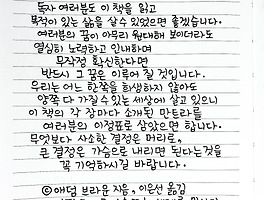 독자 여러분도 이 책을 읽고
목적이 있는 삶을 살 수 있었으면 좋겠습니다.
여러분의 꿈이 아무리 원대해 보이더라도
열심히 노력하고 인내하며
무작정 확신한다면
반드시 그 꿈은 이루어 질 것입니다.
우리는 어느 한쪽을 희생하지 않아도
양쪽 다 가질 수 있는 세상에 살고 있으니
이 책의 각 장마다 소개된 만트라를
여러분의 이정표로 삼았으면 합니다.
무엇보다 사소한 결정은 머리로,
큰 결정은 가슴으로 내리면 된다는것을
꼭 기억하시길 바랍니다.
ⓒ애덤 브라운 지음, 이은선 옮김